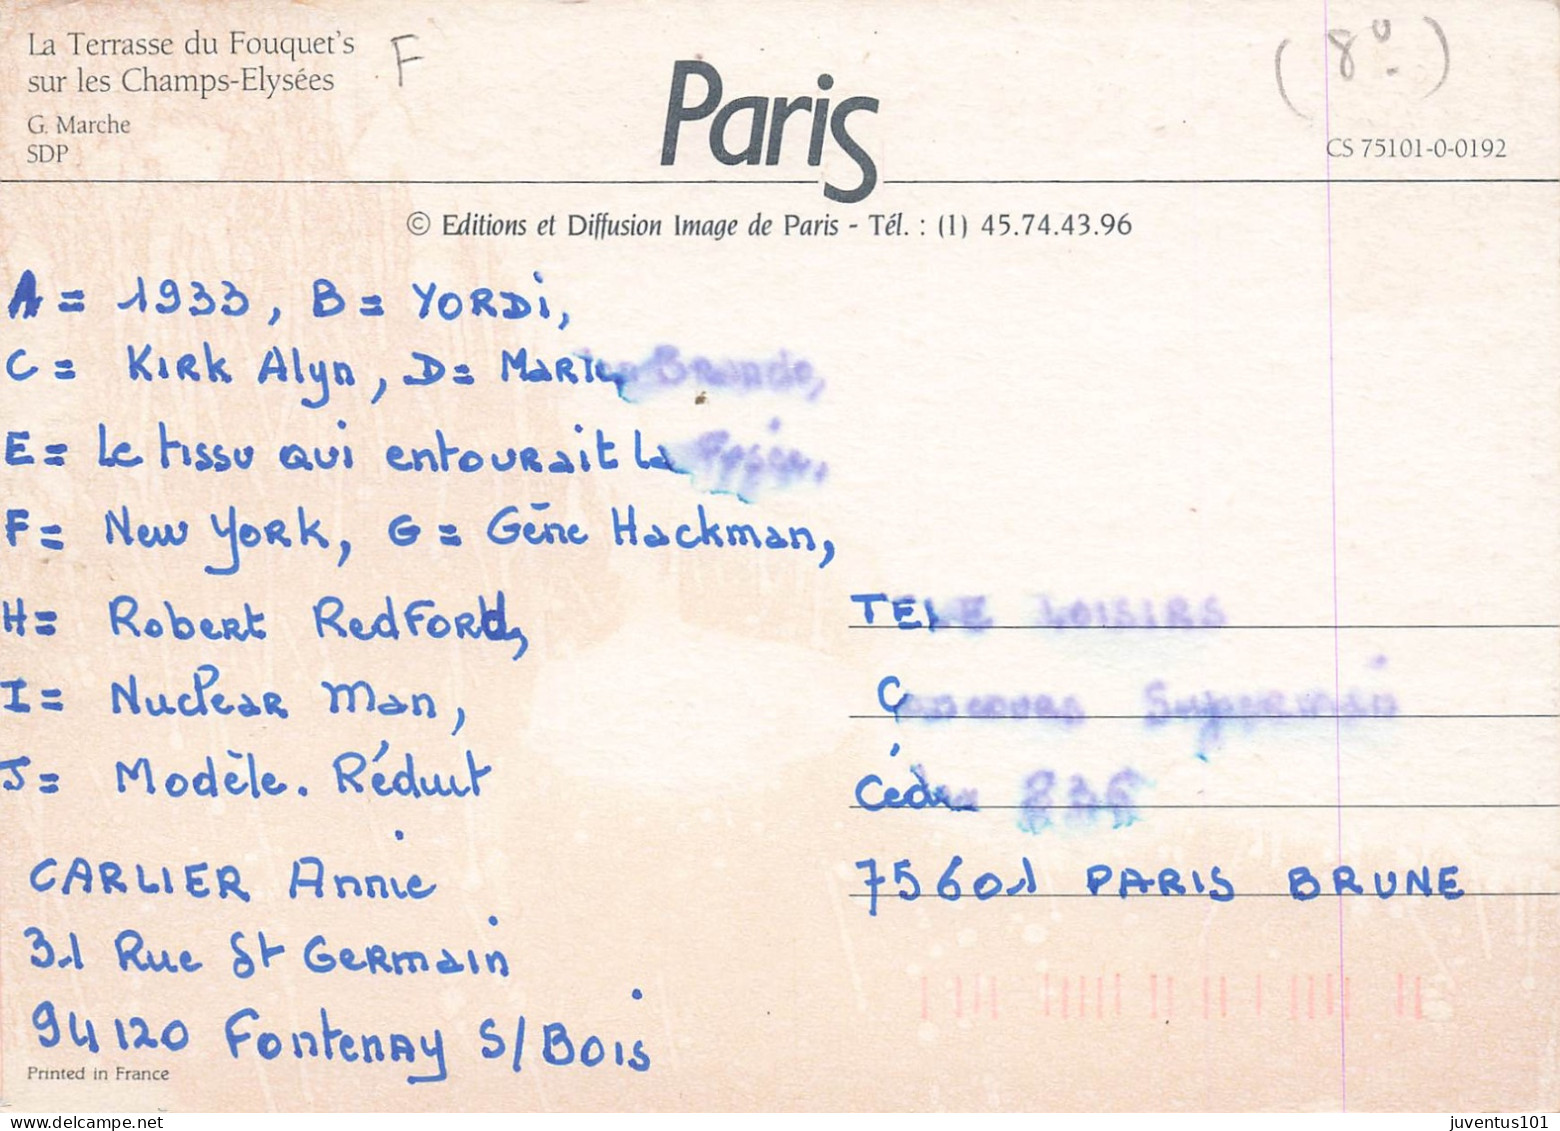 La Terrasse du Fouquet's
sur les Champs-Elysées
G. Marche
SDP
F
Paris
(8°)
CS 75101-0-0192
© Editions et Diffusion Image de Paris - Tél. : (1) 45.74.43.96
A = 1933, B = YORDI,
C = KIRK Alyn, D = MARLon Brando,
E = Le tissu qui entourait la
F = New York, G = Gène Hackman,
H = Robert RedFord,
I = Nuclear Man,
J = Modèle. Réduit
CARLIER Annie
31 Rue St Germain
94120 Fontenay S/Bois
TELE LOISIRS
Concours Superman
Cédex 836
75601 PARIS BRUNE
Printed in France
www.delcampe.net
juventus101